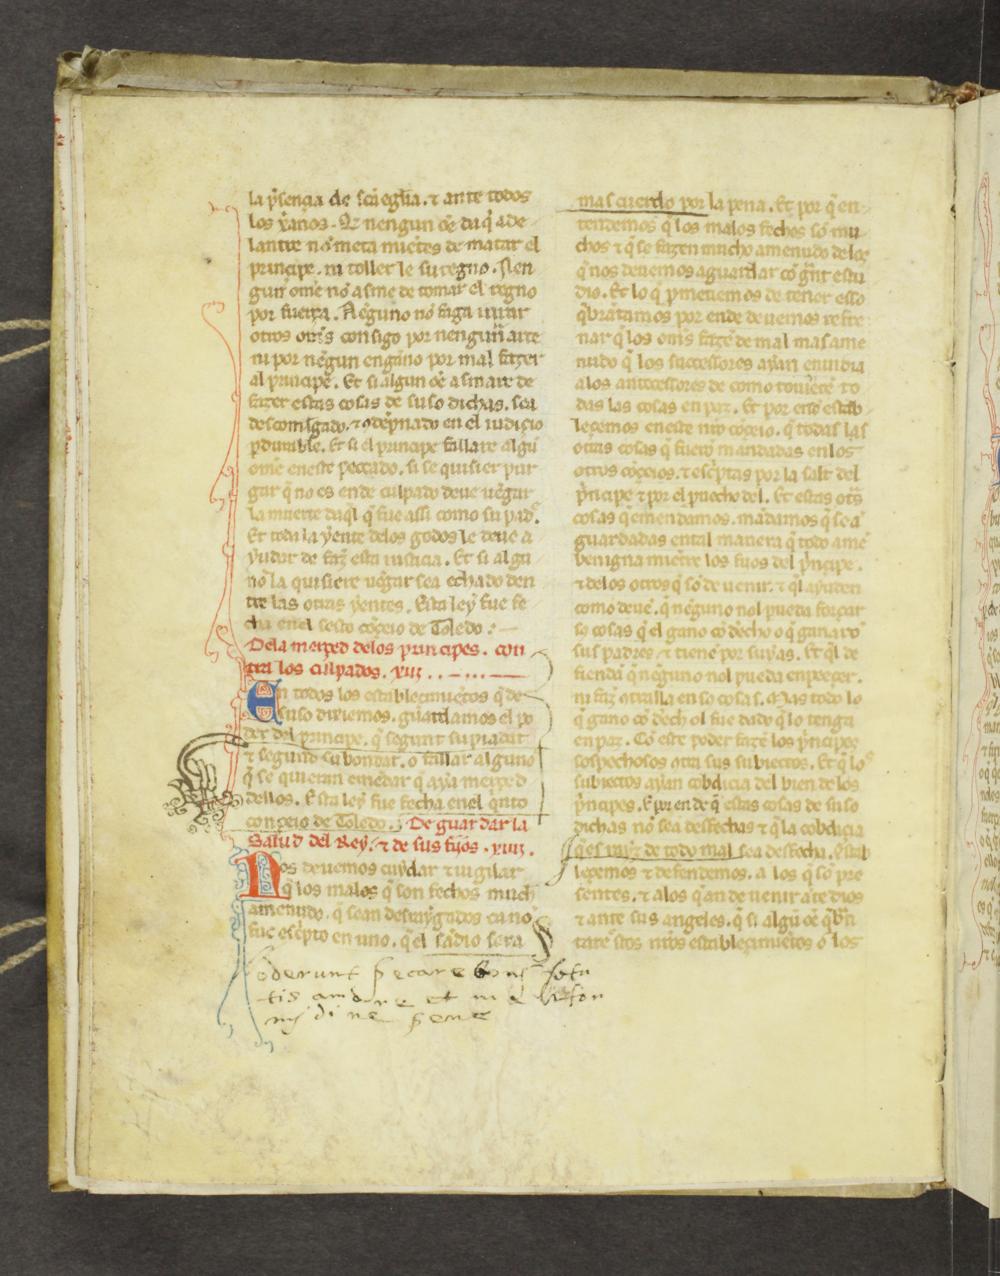 la p̃sençia de sc̃a eglia. ⁊ ante todos
los x̃anos. Q̃ nengun oẽ daq̃ ade
lantre nõ meta mietes de matar el
principe. ni toller le su regno. Nen
gun ome nõ asme de tomar el regno
por fuerça. Neguno nõ faga iurar
otros om̃s consigo por nengun arte
ni por nẽgun engãno por mal fazer
al principe. Et si algun oẽ asmare de
fazer estas cosas de suso dichas. sea
descomlgado. ⁊ odẽpnado en el iudiçio
pdurable. Et si el principe fallare algũ
ome en este peccado. si se quisier pur
gar q̃ no es ende culpado deue uẽgar
la muerte daq̃l q̃ fue assi como su pad̃.
Et toda la yente delos godos le deue a
yudar de faz̃ esta iusticia. Et si algũ
nõ la quisiere uẽgar sea echado den
tre las otras yentes. Esta ley fue fe
cha en el sesto cõçeio de Toledo:
Dela merçed delos principes. con
tra los culpados. xiii.
En todos los establecimiẽtos q̃ de
suso dixiemos. guardamos el po
der del principe. q̃ segunt su piadat
⁊ segund su bondat. o fallar alguno
q̃ se quieran emẽdar q̃ aya merçed
dellos. Esta ley fue fecha en el q̃nto
conçeio de Toledo. De guardar la
Salud del Rey. ⁊ de sus fijos. xiiij.
Nos deuemos cuydar ⁊ uigilar
q̃ los malos q̃ son fechos much
amenudo. q̃ sean desraygados ca nõ
fue esc̃pto en uno. q̃ el sãdio sera
oderunt pecare boni
mas cuerdo por la pena. Et por q̃ en
tendemos q̃ los malos fechos sõ mu
chos ⁊ q̃ se fazen mucho amenudo de los
q̃ nos deuemos aguardar cõ grãt estu
dio. Et lo q̃ pmetiemos de tener esso
q̃brãtamos por ende deuemos refre
nar q̃ los om̃s fazẽ de mal mas ame
nudo q̃ los successores ayan enuidia
a los antecessores de como touierẽ to
das las cosas en paz. Et por esso estab
leçemos en este nr̃o cõçeio. q̃ todas las
otras cosas q̃ fuerõ mandadas en los
otros cõçeios. ⁊ esc̃ptas por la salt del
p̃ncipe ⁊ por el puecho del. Et estas otr̃s
cosas q̃ emendamos. mãdamos q̃ seã
guardadas en tal manera q̃ todo ome
benigna miẽtre los fijos del p̃ncipe.
⁊ delos otros q̃ sõ de uenir. ⁊ q̃l ayuden
como deuẽ. q̃ nẽguno nol pueda forçar
sus cosas q̃ el gano cõ dr̃echo o q̃ ganarõ
sus padres ⁊ tiene por suyas. Et q̃l de
fienda q̃ nẽguno nol pueda enpeeçer.
ni faz̃ otralla en so cosas. Mas todo lo
q̃ gano cõ dech ol fue dado q̃ lo tenga
en paz. Cõ este poder fazẽ los p̃ncipes
sospechosos otra sus subiectos. Et q̃ los
subiectos ayan cobdiçia del bien de los
p̃ncipes. E por ende q̃ estas cosas de suso
dichas nõ seã desfechas ⁊ q̃ la cobdiçia
q̃ es raiz de todo mal sea desfecha. Estab
leçemos ⁊ defendemos. a los q̃ sõ pre
sentes. ⁊ alos q̃ an de uenir ãte dios
⁊ ante sus angeles. q̃ si algũ oẽ q̃b̃n
tare estos nr̃os establecimiẽtos o los